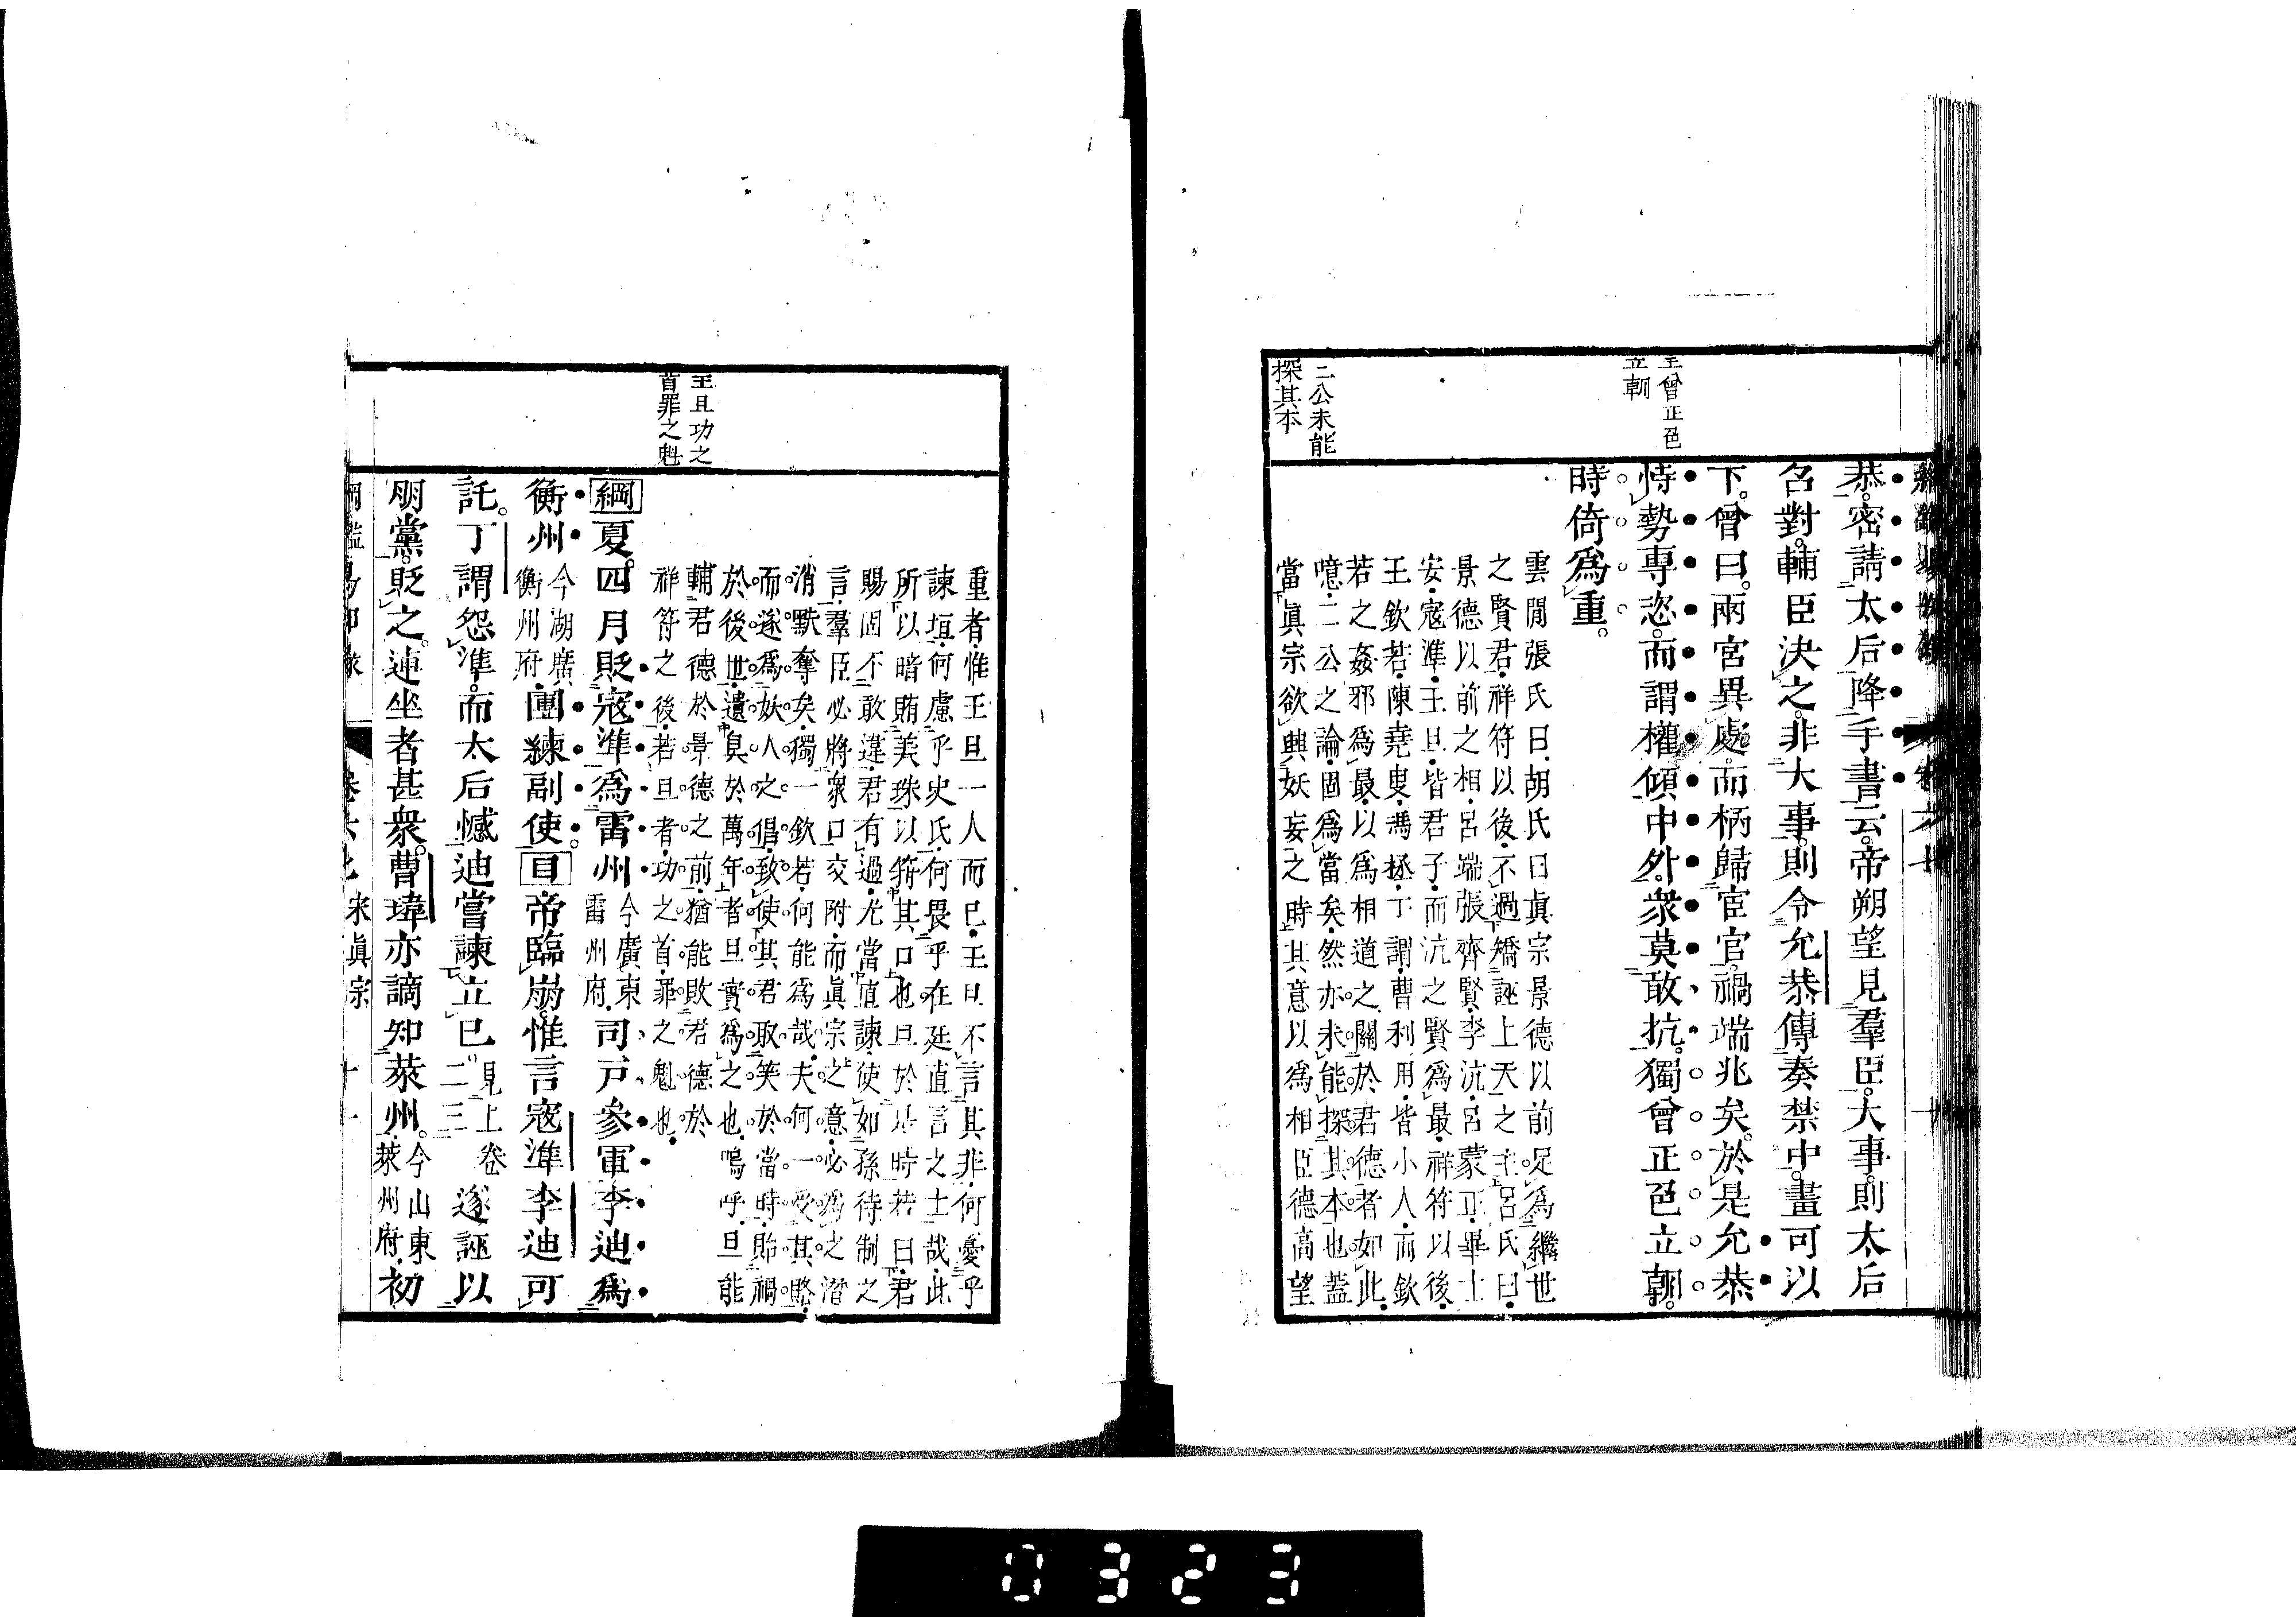 王曾正色
立朝
二公未能
探其本
恭密請太后降手書云帝朔望見羣臣大事則太后
召對輔臣決之非大事則令允恭傳奏禁中畫可以
下曾曰兩宮異處而柄歸宦官禍端兆矣於是允恭
恃勢專恣而謂權傾中外衆莫敢抗獨曾正色立朝
時倚爲重
雲間張氏曰胡氏曰眞宗景德以前足爲繼世
之賢君祥符以後不過矯誣上天之主呂氏曰
景德以前之相呂端張齊賢李沆呂蒙正畢士
安寇準王旦皆君子而沆之賢爲最祥符以後
王欽若陳堯叟馮拯丁謂曹利用皆小人而欽
若之姦邪爲最以爲相道之關於君德者如此
噫二公之論固爲當矣然亦未能探其本也蓋
當眞宗欲興妖妄之時其意以爲相臣德高望
王旦功之
首罪之魁
重者惟王旦一人而已王旦不言其非何憂乎
諫垣何慮乎史氏何畏乎在廷直言之士哉此
所以暗賄美珠以箝其口也旦於是時若曰君
賜固不敢違君有過尤當直諫使如孫待制之
言羣臣必將衆口交附而眞宗之意必爲之潛
消默奪矣獨一欽若何能爲哉夫何一受其賂
而遂爲妖人之倡致使其君取笑於當時貽禍
於後世遺臭於萬年者旦實爲之也嗚呼旦能
輔君德於景德之前猶能敗君德於
祥符之後若旦者功之首罪之魁也
綱夏四月貶寇準爲雷州今廣東雷州府司戸參軍李迪爲
衡州今湖廣衡州府團練副使目帝臨崩惟言寇準李迪可
託丁謂怨準而太后憾迪嘗諫立已見上卷二三遂誣以
朋黨貶之連坐者甚衆曹瑋亦謫知萊州今山東萊州府初
宋眞宗
0323